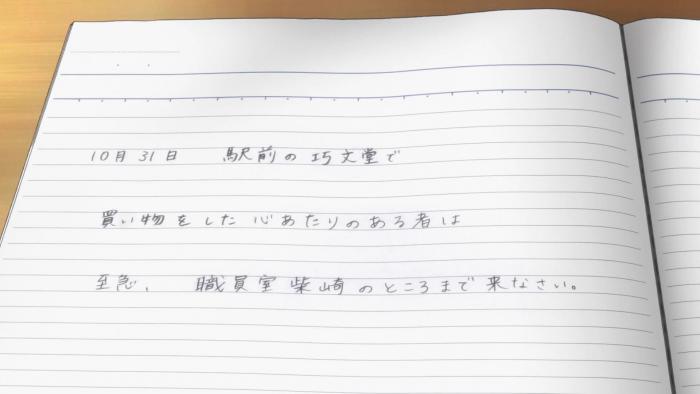 10月31日 駅前の巧文堂で
買い物をした心あたりのある者は
至急、 職員室柴崎のところまで来なさい。